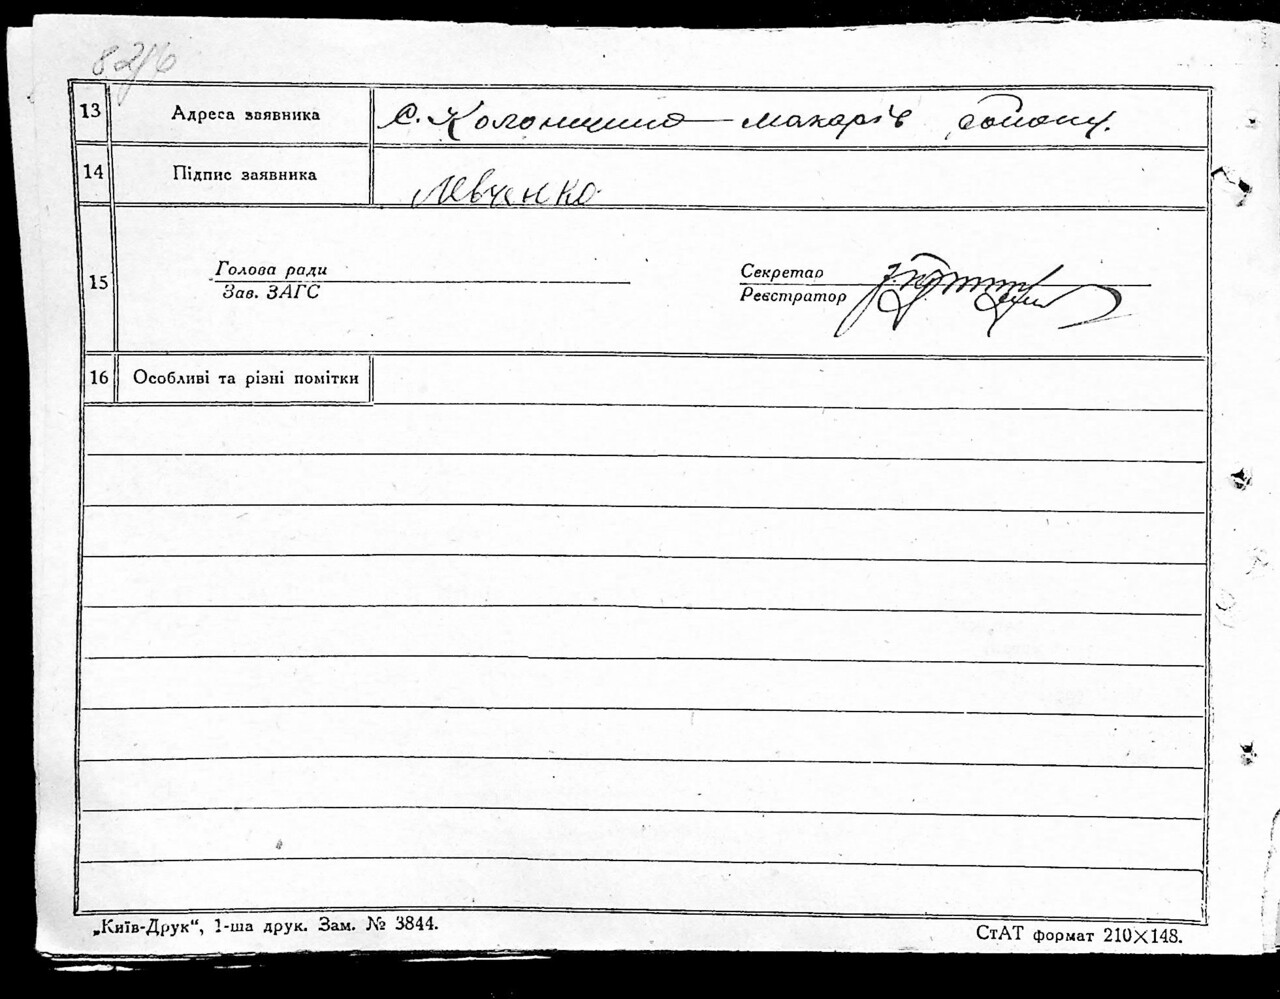 82/6
13 Адреса заявника с. Колонщина макарів району.
14 Підпис заявника Левченко
15 Голова ради Секретар
Зав. ЗАГС Реєстратор
16 Особливі та різні помітки
„Київ-Друк“, 1-ша друк. Зам. № 3844. СтАТ формат 210×148.